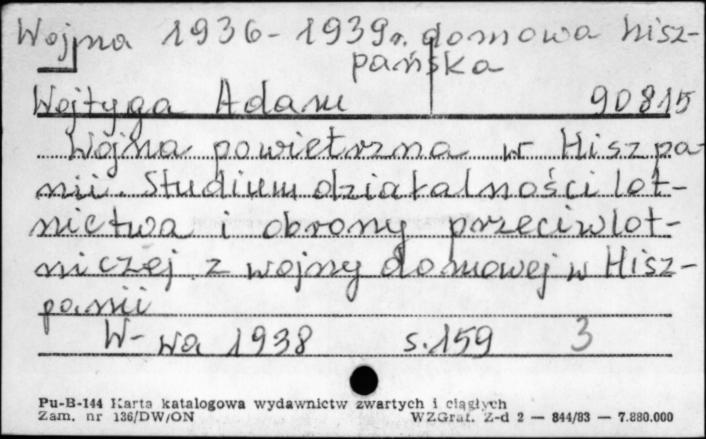 Wojna 1936-1939r. domowa hisz-
pańska
Wojtyga Adam 90815
Wojna powietrzna w Hiszpa-
nii. Studium działalności lot-
nictwa i obrony przeciwlot-
niczej z wojny domowej w Hisz-
panii
W-wa 1938 s.159 3
Pu-B-144 Karta katalogowa wydawnictw zwartych i ciągłych
Zam. nr 136/DW/ON WZGraf. Z-d 2 — 844/83 — 7.880.000